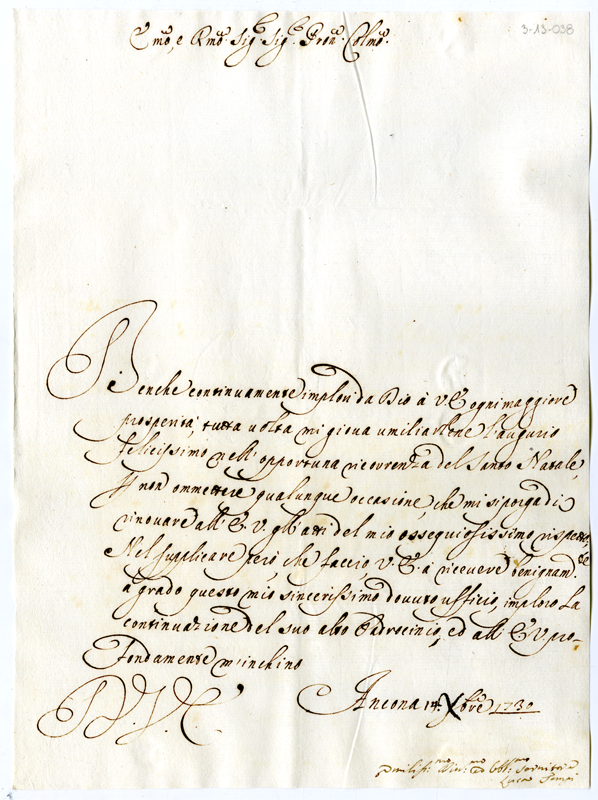 Emo, e Rmo Sigr Sigr Pron Colmo
3-13-038
Benche continuamente implori da Dio à V. E. ogni maggiore
prosperità, tutta volta mi giova umiliarlene l'augurio
felicissimo nell'opportuna ricorrenza del Santo Natale,
non ommettere qualunque occasione, che mi si porga di
rinovare all'E. V. gl'atti del mio ossequiosissimo rispetto
Nel supplicare però, che faccio, V. E. à ricevere benignamte
à grado questo mio sincerissimo dovuto ufficio, imploro la
continuazione del suo alto Padrocinio, ed all'E. V. pro-
fondamente m'inchino
Ancona 14. Xbre 1730
Servitore
Luca